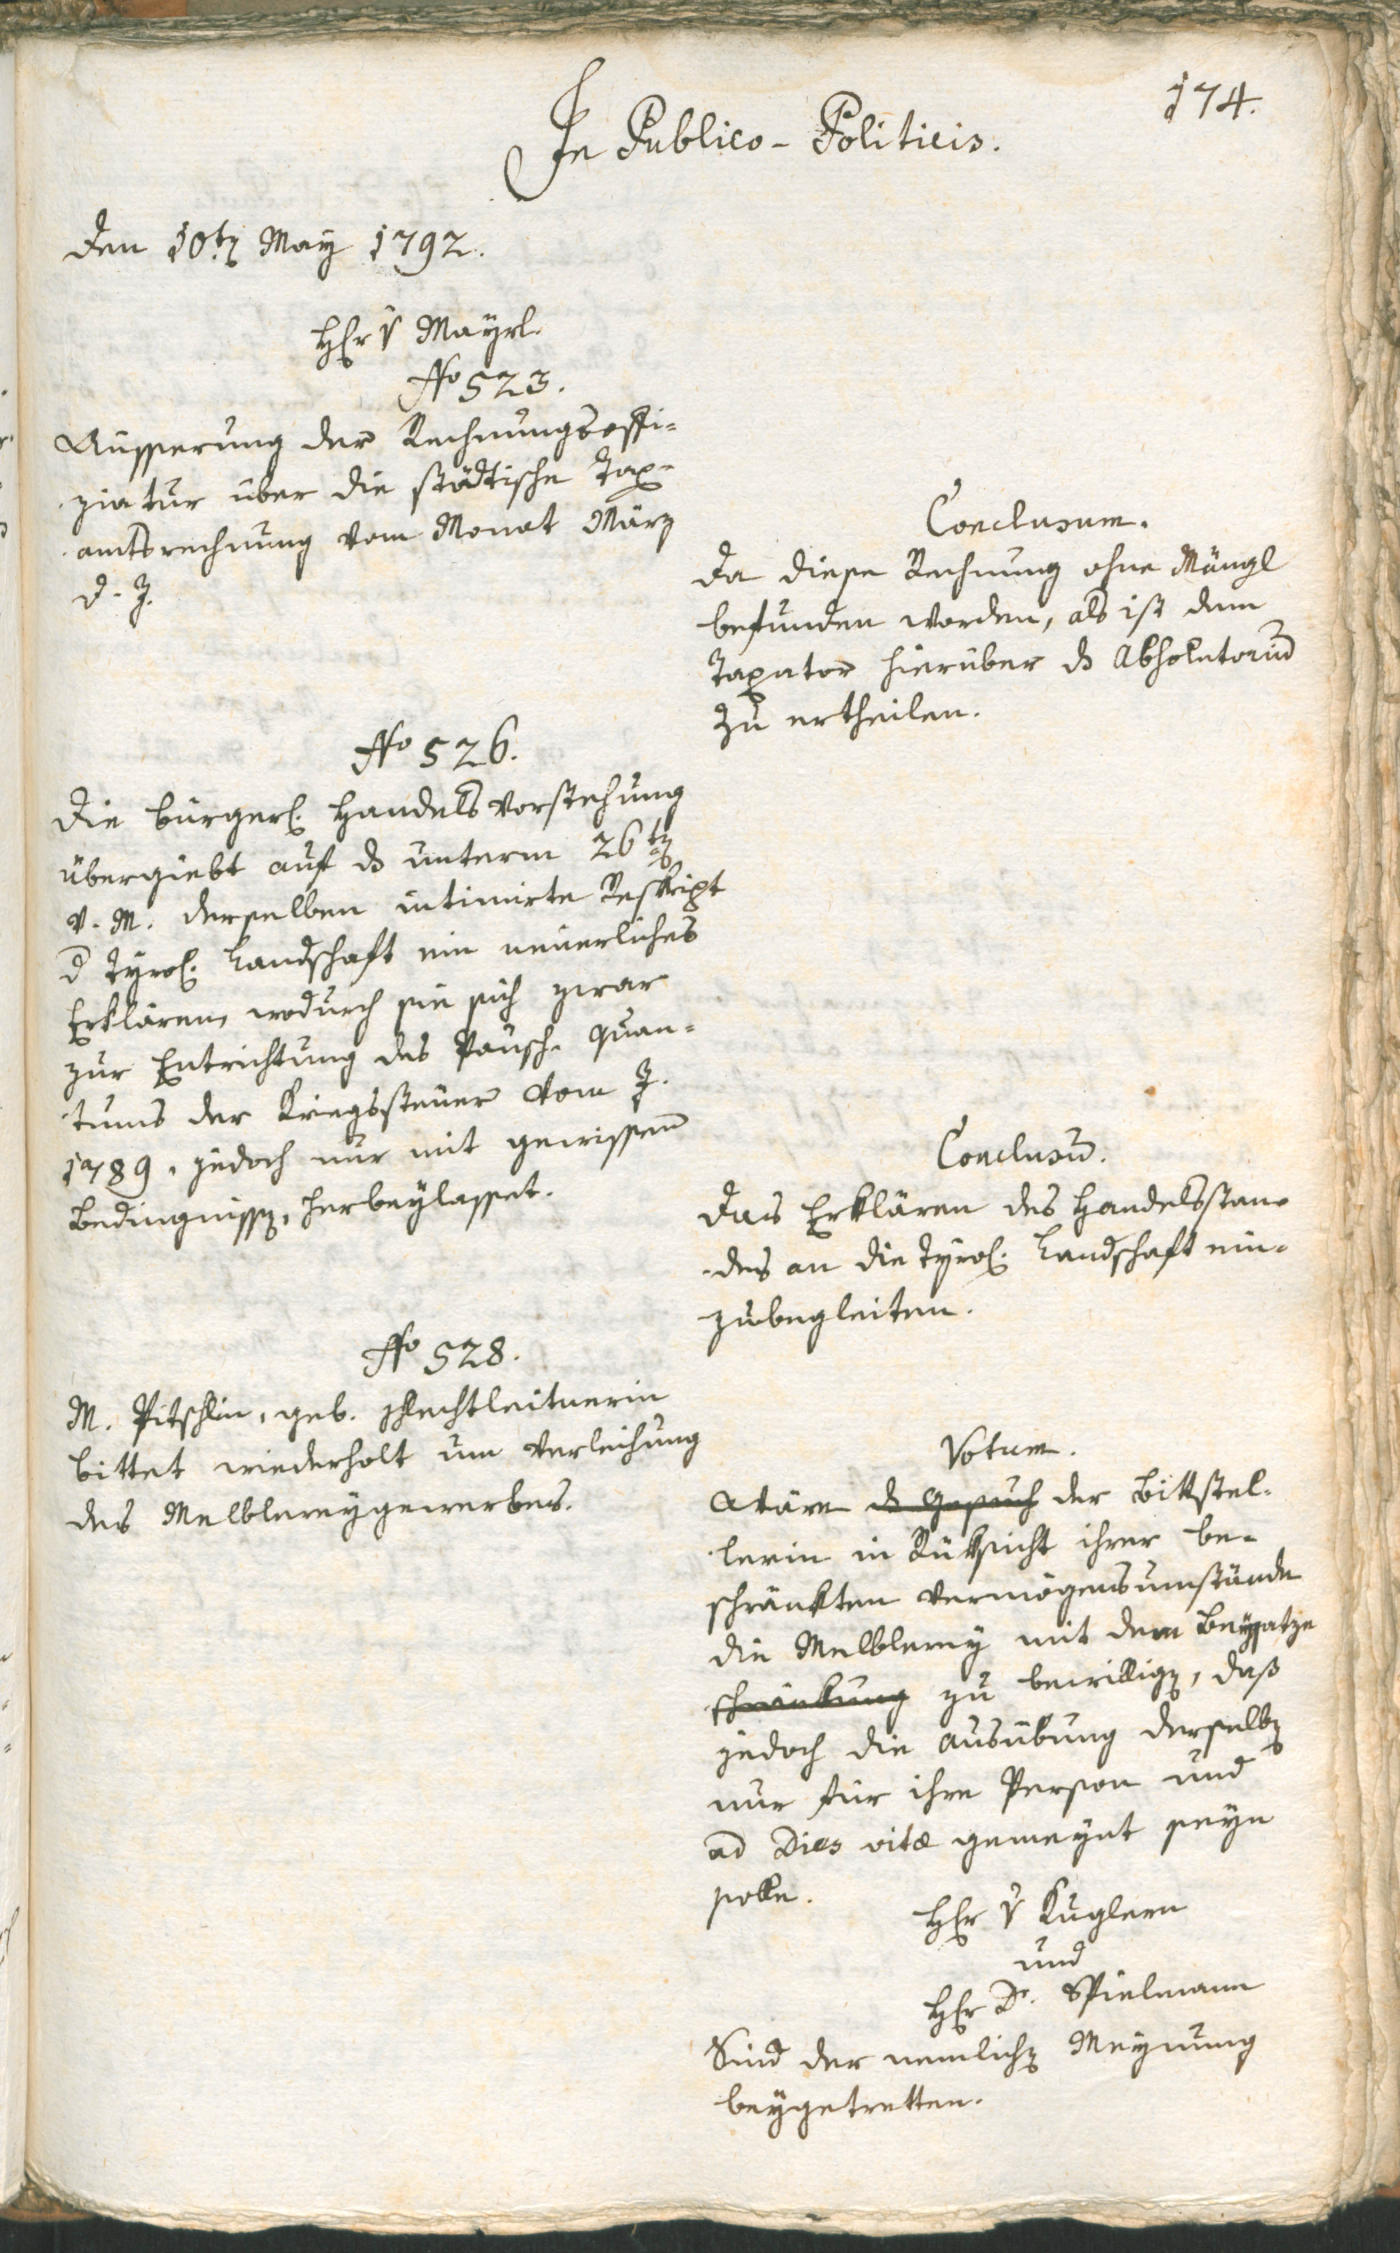 174.
In Publico-Politicis.
Den 10tn May 1792.
Hr v Mayrl.
No 523.
Äusserung der Rechnungsoffi=
ziatur über die städtische Tax=
amtsrechnung vom Monat März
d. J.
Conclusum.
Da diese Rechnung ohne Mängl
befunden worden, als ist dem
Taxator hierüber ds Absolutorium
zu ertheilen.
No 526.
Die bürgerl. Handelsvorstehung
übergiebt auf ds unterm 26tn
v. M. derselben intimirte Reskript
d Tyrol. Landschaft ein neuerliches
Erklären, wodurch sie sich zwar
zur Entrichtung des Pausch. Quan=
tums der Kriegssteuer vom J.
1789. jedoch nur mit gewissen
Bedingnissn, herbeylasset.
Conclusum.
Das Erklären des Handelsstan=
des an die Tyrol. Landschaft ein=
zubegleiten.
No 528.
M. Pitschlin, geb. Schlechtleitnerin
bittet wiederholt um Verleihung
des Melblereygewerbes.
Votum.
Wäre ds Gesuch der Bittstel=
lerin in Rüksicht ihrer be=
schränkten Vermögensumstände
die Melblerey mit dem Beysatze
schränkung zu bewillign, daß
jedoch die Ausübung derselbn
nur für ihre Person und
ad Dies vitæ gemeynt seyn
solle.
Hr v Kuglern
und
Hr Dr. Spielmann
Sind der nemlichn Meynung
beygetretten.